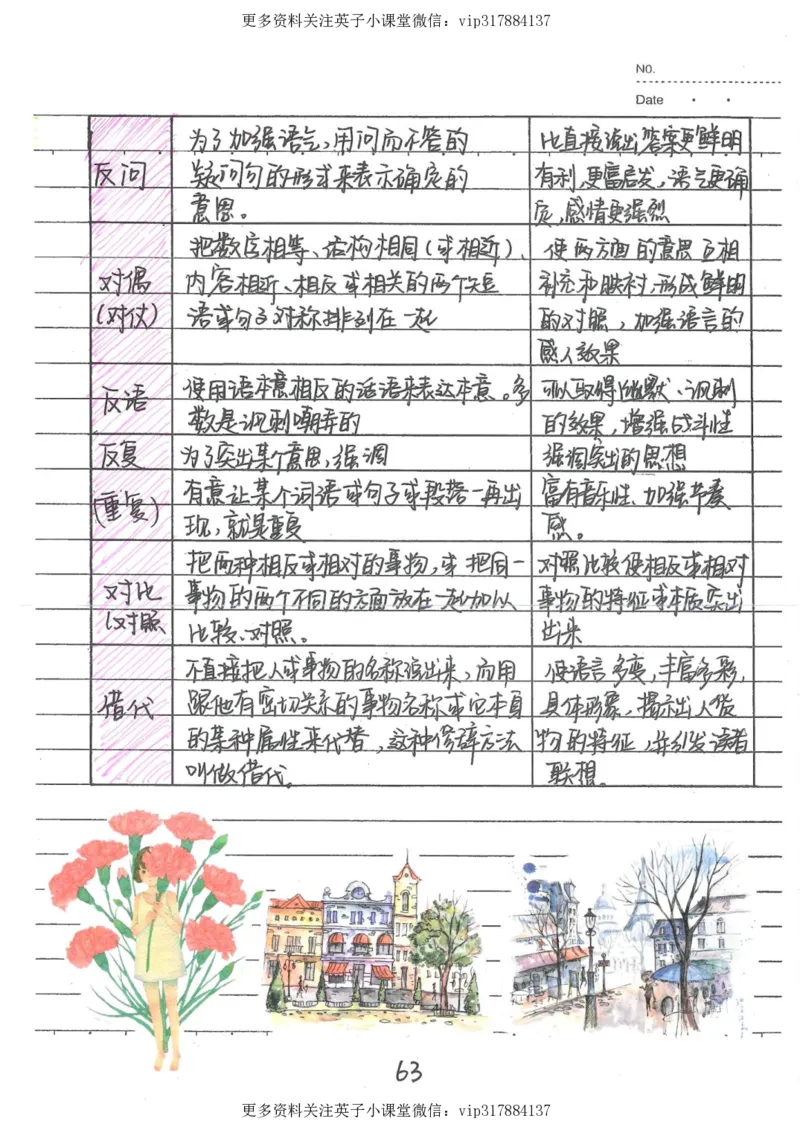 更多资料关注英子小课堂微信：vip317884137
No.
Date
为了加强语气，用问而不答的
疑问句的形式来表示确定的
意思。
反问
比直接说出答案更鲜明
有利，更富启发，语气更确
定，感情更强烈
把数字相等、结构相同（或相近）、
内容相近、相反或相关的两个短
语或句子对称排列在一起
对偶
（对仗）
使两方面的意思互相
补充和映衬，形成鲜明
的对照，加强语言的
感人效果
反语
使用语本意相反的话语来表达本意。多
数是讽刺嘲弄的
可以取得幽默、讽刺
的效果，增强战斗性
反复
（重复）
为了突出某个意思，强调
有意让某个词语或句子或段落一再出
现，就是重复
强调突出的思想
富有音乐性、加强节奏
感。
对比
（对照
把两种相反或相对的事物，或把同一
事物的两个不同的方面放在一起加以
比较、对照。
对照比较使相反或相对
事物的特征或本质突出
出来
借代
不直接把人或事物的名称说出来，而用
跟他有密切关系的事物名称或它本身
的某种属性来代替，这种修辞方法
叫做借代。
使语言多变，丰富多彩，
具体形象，揭示出人或
物的特征，并引发读者
联想。
63
更多资料关注英子小课堂微信：vip317884137